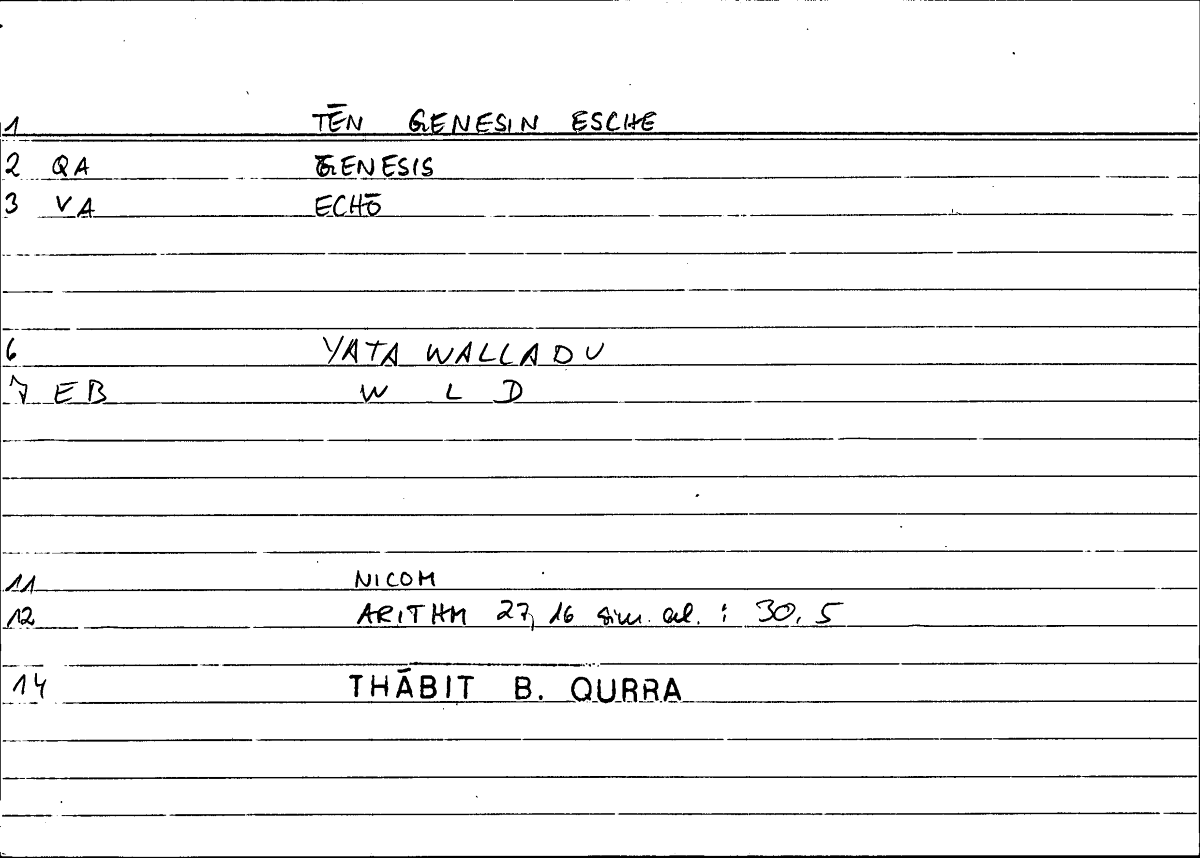 1 TĒN GENESIN ESCHE
2 QA GENESIS
3 VA ECHŌ
6 YATA WALLADU
7 EB W L D
11 NICOM
12 ARITHM 27, 16 sim. al. : 30, 5
14 THĀBIT B. QURRA